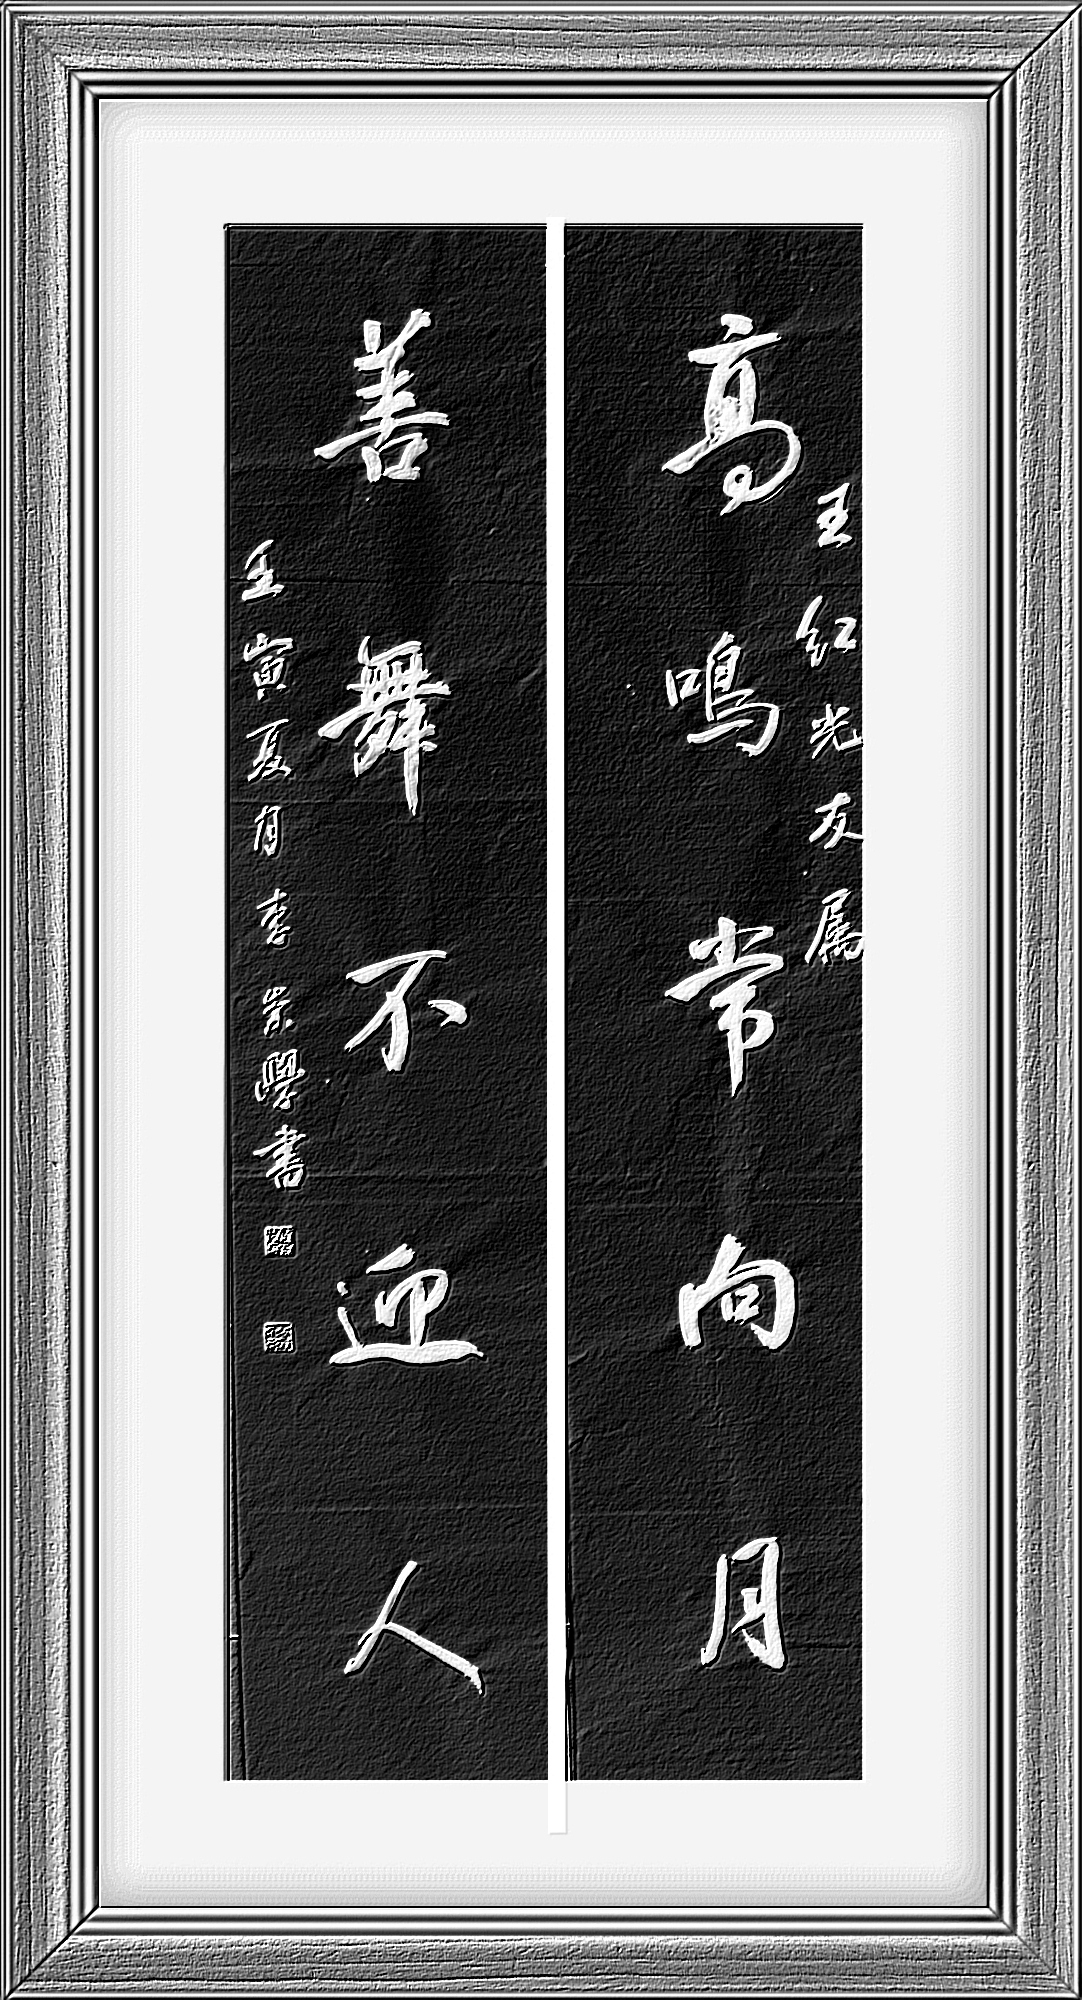 王红光友属
高鸣常向月
善舞不迎人
壬寅夏月李宗学書